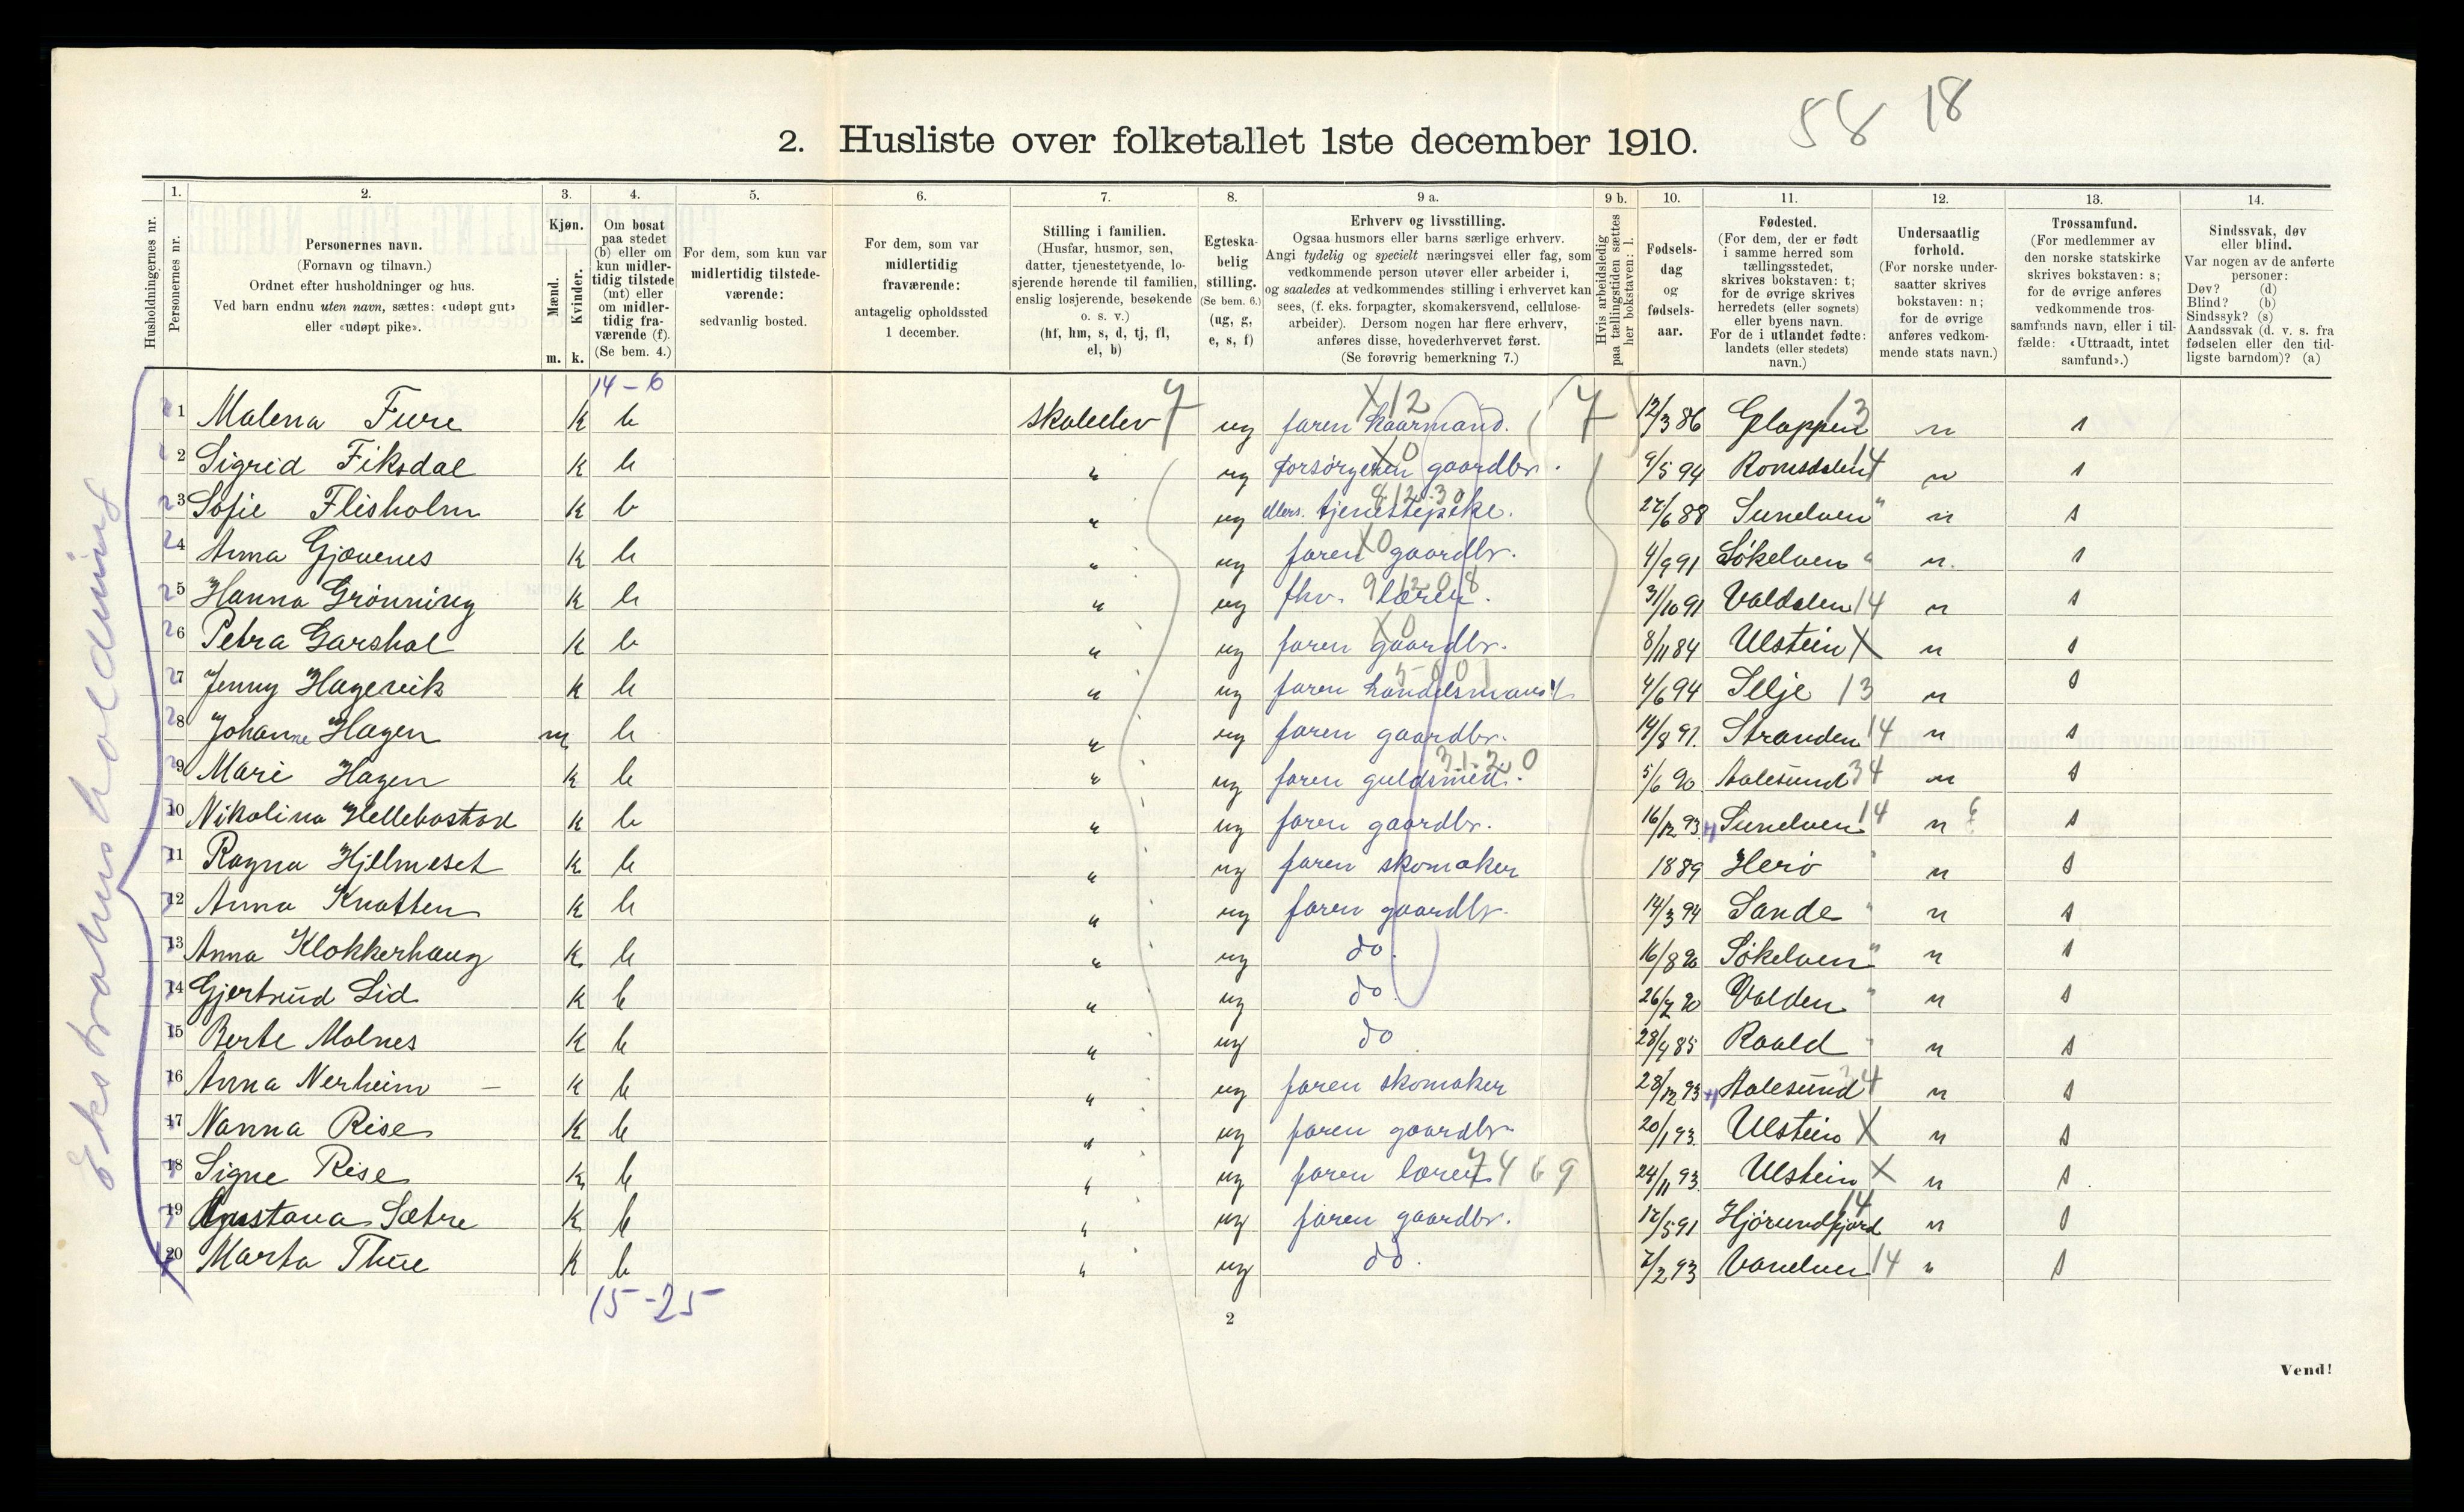 58 18
2. Husliste over folketallet 1ste december 1910.
Husholdningernes nr.
1. Personernes nr.
2. Personernes navn.
(Fornavn og tilnavn.)
Ordnet efter husholdninger og hus.
Ved barn endnu uten navn, sættes: «udøpt gut»
eller «udøpt pike».
3. Kjøn.
Mænd. m.
Kvinder. k.
4. Om bosat
paa stedet
(b) eller om
kun midler-
tidig tilstede
(mt) eller
om midler-
tidig fra-
værende (f).
(Se bem. 4.)
5. For dem, som kun var
midlertidig tilstede-
værende:
sedvanlig bosted.
6. For dem, som var
midlertidig
fraværende:
antagelig opholdssted
1 december.
7. Stilling i familien.
(Husfar, husmor, søn,
datter, tjenestetyende, lo-
sjerende hørende til familien,
enslig losjerende, besøkende
o. s. v.)
(hf, hm, s, d, tj, fl,
el, b)
8. Egteska-
belig
stilling.
(Se bem. 6.)
(ug, g,
e, s, f)
9 a. Erhverv og livsstilling.
Ogsaa husmors eller barns særlige erhverv.
Angi tydelig og specielt næringsvei eller fag, som
vedkommende person utøver eller arbeider i,
og saaledes at vedkommendes stilling i erhvervet kan
sees, (f. eks. forpagter, skomakersvend, cellulose-
arbeider). Dersom nogen har flere erhverv,
anføres disse, hovederhvervet først.
(Se forøvrig bemerkning 7.)
9 b. Hvis arbeidsledig
paa tællingstiden sættes
her bokstaven: l.
10. Fødsels-
dag
og
fødsels-
aar.
11. Fødested.
(For dem, der er født
i samme herred som
tællingsstedet,
skrives bokstaven: t;
for de øvrige skrives
herredets (eller sognets)
eller byens navn.
For de i utlandet fødte:
landets (eller stedets)
navn.)
12. Undersaatlig
forhold.
(For norske under-
saatter skrives
bokstaven: n;
for de øvrige
anføres vedkom-
mende stats navn.)
13. Trossamfund.
(For medlemmer av
den norske statskirke
skrives bokstaven: s;
for de øvrige anføres
vedkommende tros-
samfunds navn, eller i til-
fælde: «Uttraadt, intet
samfund».)
14. Sindssvak, døv
eller blind.
Var nogen av de anførte
personer:
Døv? (d)
Blind? (b)
Sindssyk? (s)
Aandssvak (d. v. s. fra
fødselen eller den tid-
ligste barndom)? (a)
Ekstrahusholdning
14-6
1 Malena Fure K b skoleelev 7 ug faren kaarmand. X12 7 12/3 86 Gloppen 13 n s
2 Sigrid Fiksdal K b " ug forsørgeren gaardbr. X0 9/5 94 Romsdalen 14 n s
3 Sofie Flisholm K b " ug ellers tjenestepike. 8.12.30 27/6 88 Sunelven " n s
4 Anna Gjævenes K b " ug faren gaardbr. X0 4/9 91 Søkelven " n. s
5 Hanna Grønning K b " ug fhv. 91208 31/10 91 Valdalen 14 n s
6 Petra Garshol K b " ug faren gaardbr. X0 8/11 84 Ulstein X n s
7 Jenny Hagevik K b " ug faren handelsmand 4/6 94 Selje 13 n s
8 Johanne Hagen m b " ug faren gaardbr. 14/8 91. Stranden 14 n s
9 Mari Hagen K b " ug faren guldsmed. 31.20 5/6 90. Aalesund 34 n s
10 Nikolina Hellebostad K b " ug faren gaardbr. 16/12 93. Sunelven 14 n s
11 Ragna Hjelmeset K b " ug faren skomaker 1889 Herø " n s
12 Anna Knotten K b " ug faren gaardbr. 14/3 94 Sande " n s
13 Anna Klokkerhaug K. b " ug do. 16/8 90 Søkelven " n s
14 Gjertrud Lid K b " ug do 26/7 90 Volden " n s
15 Berte Molnes K b " ug do 28/9 85 Roald " n s
16 Anna Nerheim - K b " ug faren skomaker 28/12 93 Aalesund 34 n s
17 Nanna Rise K b " ug faren gaardbr 20/1 93. Ulstein X n s
18 Signe Rise K b " ug faren lærer 7469 24/11 93. Ulstein X n s
19 Gustava Sætre K b " ug faren gaardbr. 17/5 91 Hjørundfjord 14 n s
20 Marta Thue K b " ug do. 7/2 93 Vanelven 14 " s
15-25
2
Vend!